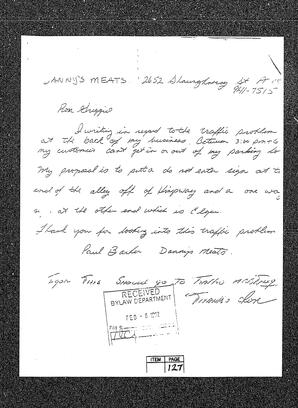 ANNY'S MEATS 2652 Shaughnessy St
941-7515
Ron
I writing in regard to the traffic problem
at the back of my business. Between 3:00 pm
my customers can't get in or out of my parking lot
My proposal is to put a do not enter sign at
end of the alley off of Kingsway and a one way
at the other end which is Elgin
Thank you for looking into this traffic problem
Paul Danny's Meats.
This Should go to Traffic
Thanks
RECEIVED
BYLAW DEPARTMENT
FEB - 6
ITEM PAGE
127